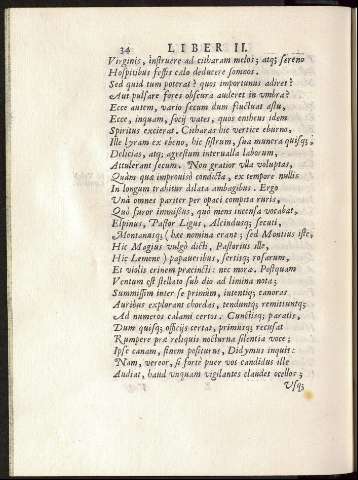 24 LIBER II.
Virginis, instruere ad citharam melos; atq; sereno
Hospitibus fessis cælo deducere somnos.
Sed quid tum poterat? quos importunus adiret?
Aut pulsare fores obscura auderet in vmbra?
Ecce autem, vario secum dum fluctuat æstu,
Ecce, inquam, socij vates, quos entheus idem
Spiritus excierat. Citharas hic vertice eburno,
Ille lyram ex ebeno, hic sistrum, sua munera quisq;
Delicias, atq; agrestum interualla laborum,
Attulerant secum. Non gratior vlla voluptas,
Quàm quæ improuisò condicta, ex tempore nullis
In longum trahitur dilata ambagibus. Ergo
Vnà omnes pariter per opaci compita ruris,
Quò furor immissus, quò mens incensa vocabat,
Elpinus, Pastor Ligus, Alcindusq; secuti,
Montanusq; (hæc nomina erant; sed Montius iste,
Hic Magius vulgò dicti, Pastorius ille,
Hic Lemene) papaueribus, sertisq; rosarum,
Et violis crinem præcincti: nec mora. Postquam
Ventum est stellato sub dio ad limina nota;
Summissim inter se primùm, intentiq; canoras
Auribus explorant chordas, tenduntq; remittuntq;
Ad numeros calami certos. Cunctisq; paratis,
Dum quisq; officijs certat, primusq; recusat
Rumpere præ reliquis nocturna silentia voce;
Ipse canam, sinem positurus, Didymus inquit:
Nam, vereor, si fortè puer vos candidus ille
Audiat, haud vnquam vigilantes claudet ocellos;
Vsq;